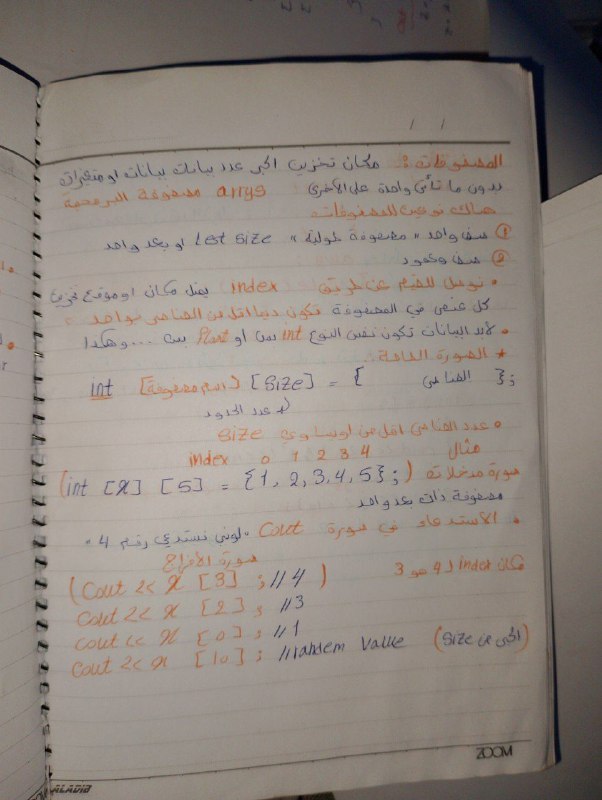 المصفوفات: مكان تخزين اكبر عدد بيانات بيانات او متغيرات
بدون ما تأثر واحدة على الأخرى arrys مصفوفة البرمجية
هناك نوعين للمصفوفات
① صف واحد " مصفوفة طولية " Lest size او بعد واحد
② صف وعمود
• نوصل للقيم عن طريق index يمثل مكان او موقع تخزين
كل عنصر في المصفوفة تكون دائما اقل من العناصر بواحد
• لابد البيانات تكون نفس النوع int بس او float بس ... وهكذا
* الصورة العامة:
int [اسم المصفوفة] [size] = { العناصر };
عدد الحدود
• عدد العناصر اقل من او يساوي size
مثال index 0 1 2 3 4
صورة مدخلات (int [x] [5] = {1, 2, 3, 4, 5};)
مصفوفة ذات بعد واحد
• الاستدعاء في صورة Cout "لو نبي نستدعي رقم 4"
صورة الأفراج
(Cout 2< x [3] ; //4) مكان index لـ 4 هو 3
Cout 2< x [2] ; //3
Cout << x [0] ; //1
Cout 2< x [10] ; //randem value (اكبر من size)
ZOOM
ALADIB